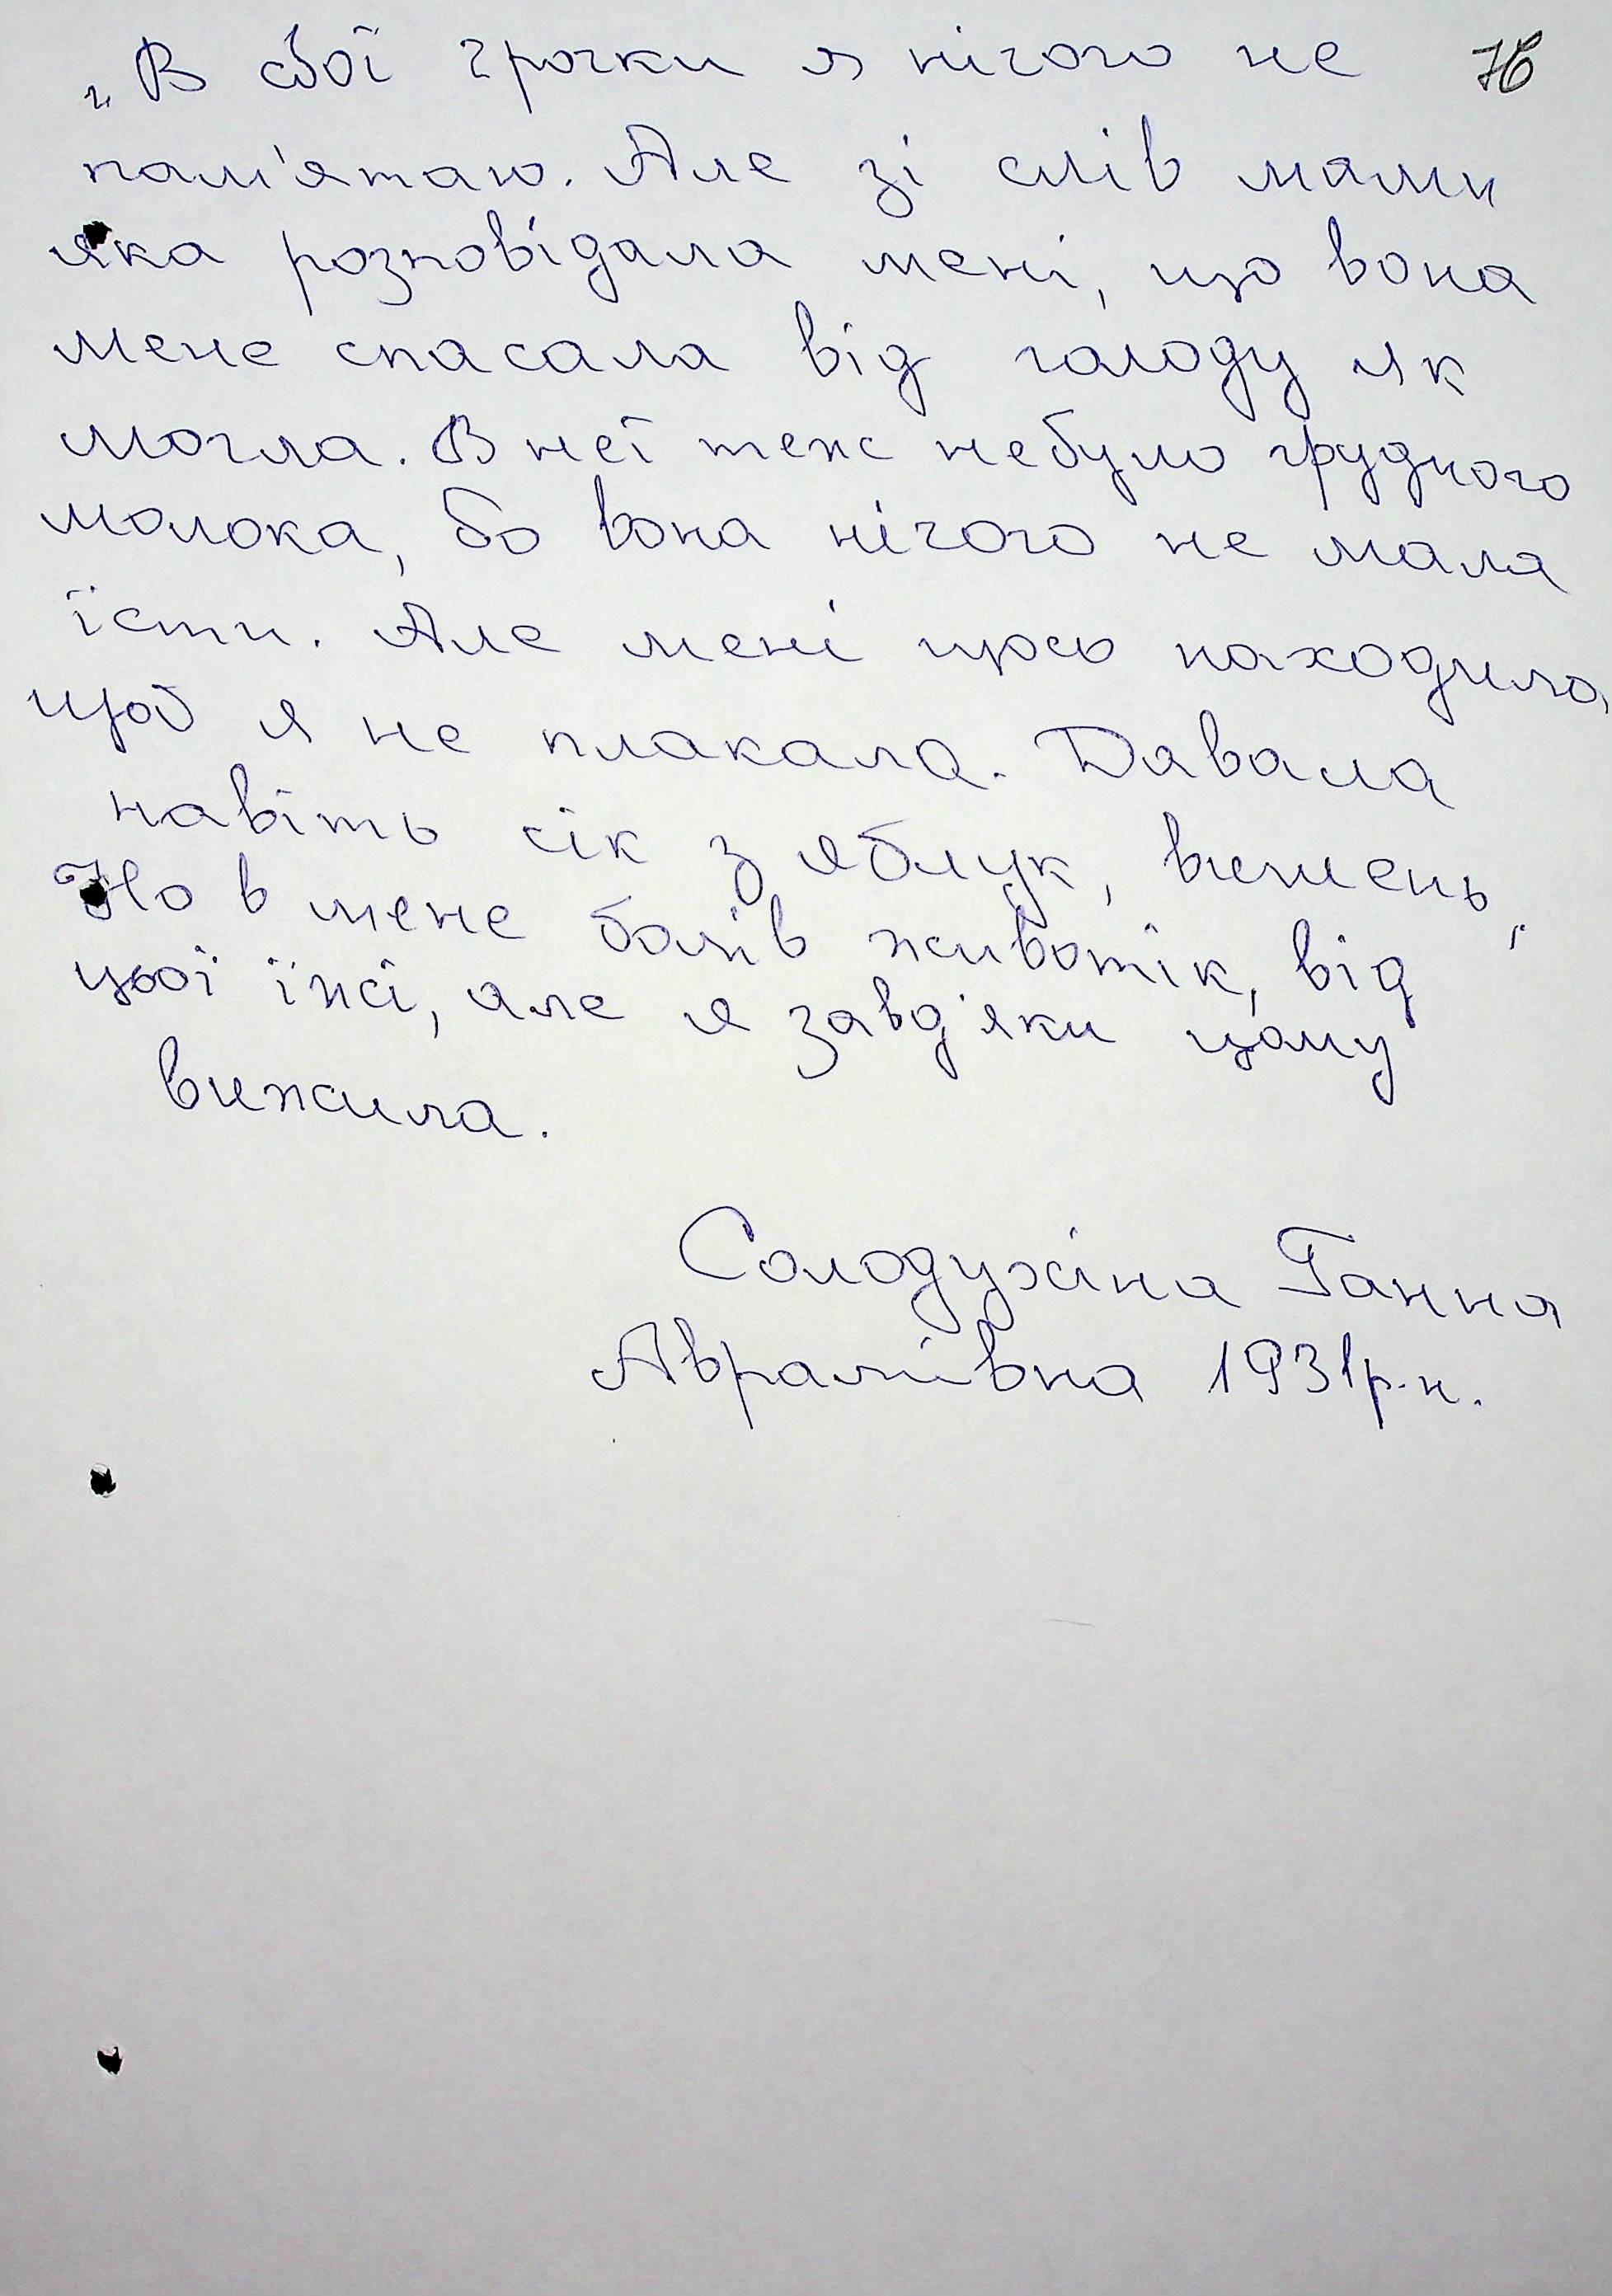 „В свої 2 рочки я нічого не
пам'ятаю. Але зі слів мами
яка розповідала мені, що вона
мене спасала від голоду як
могла. В неї теж небуло грудного
молока, бо вона нічого не мала
їсти. Але мені щось находила,
щоб я не плакала. Давала
навіть сік з яблук, вишень,
Но в мене болів животік, від
цьої їжі, але я завд'яки цьому
вижила.
Солодухіна Ганна
Аврамівна 1931р.н.